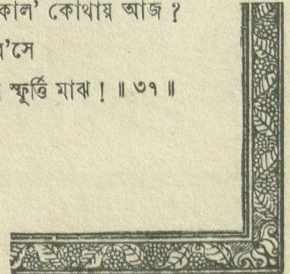 কাল’ কোথায় আজ ?
’সে
স্ফূর্ত্তি মাঝ ! ॥ ৩৭ ॥